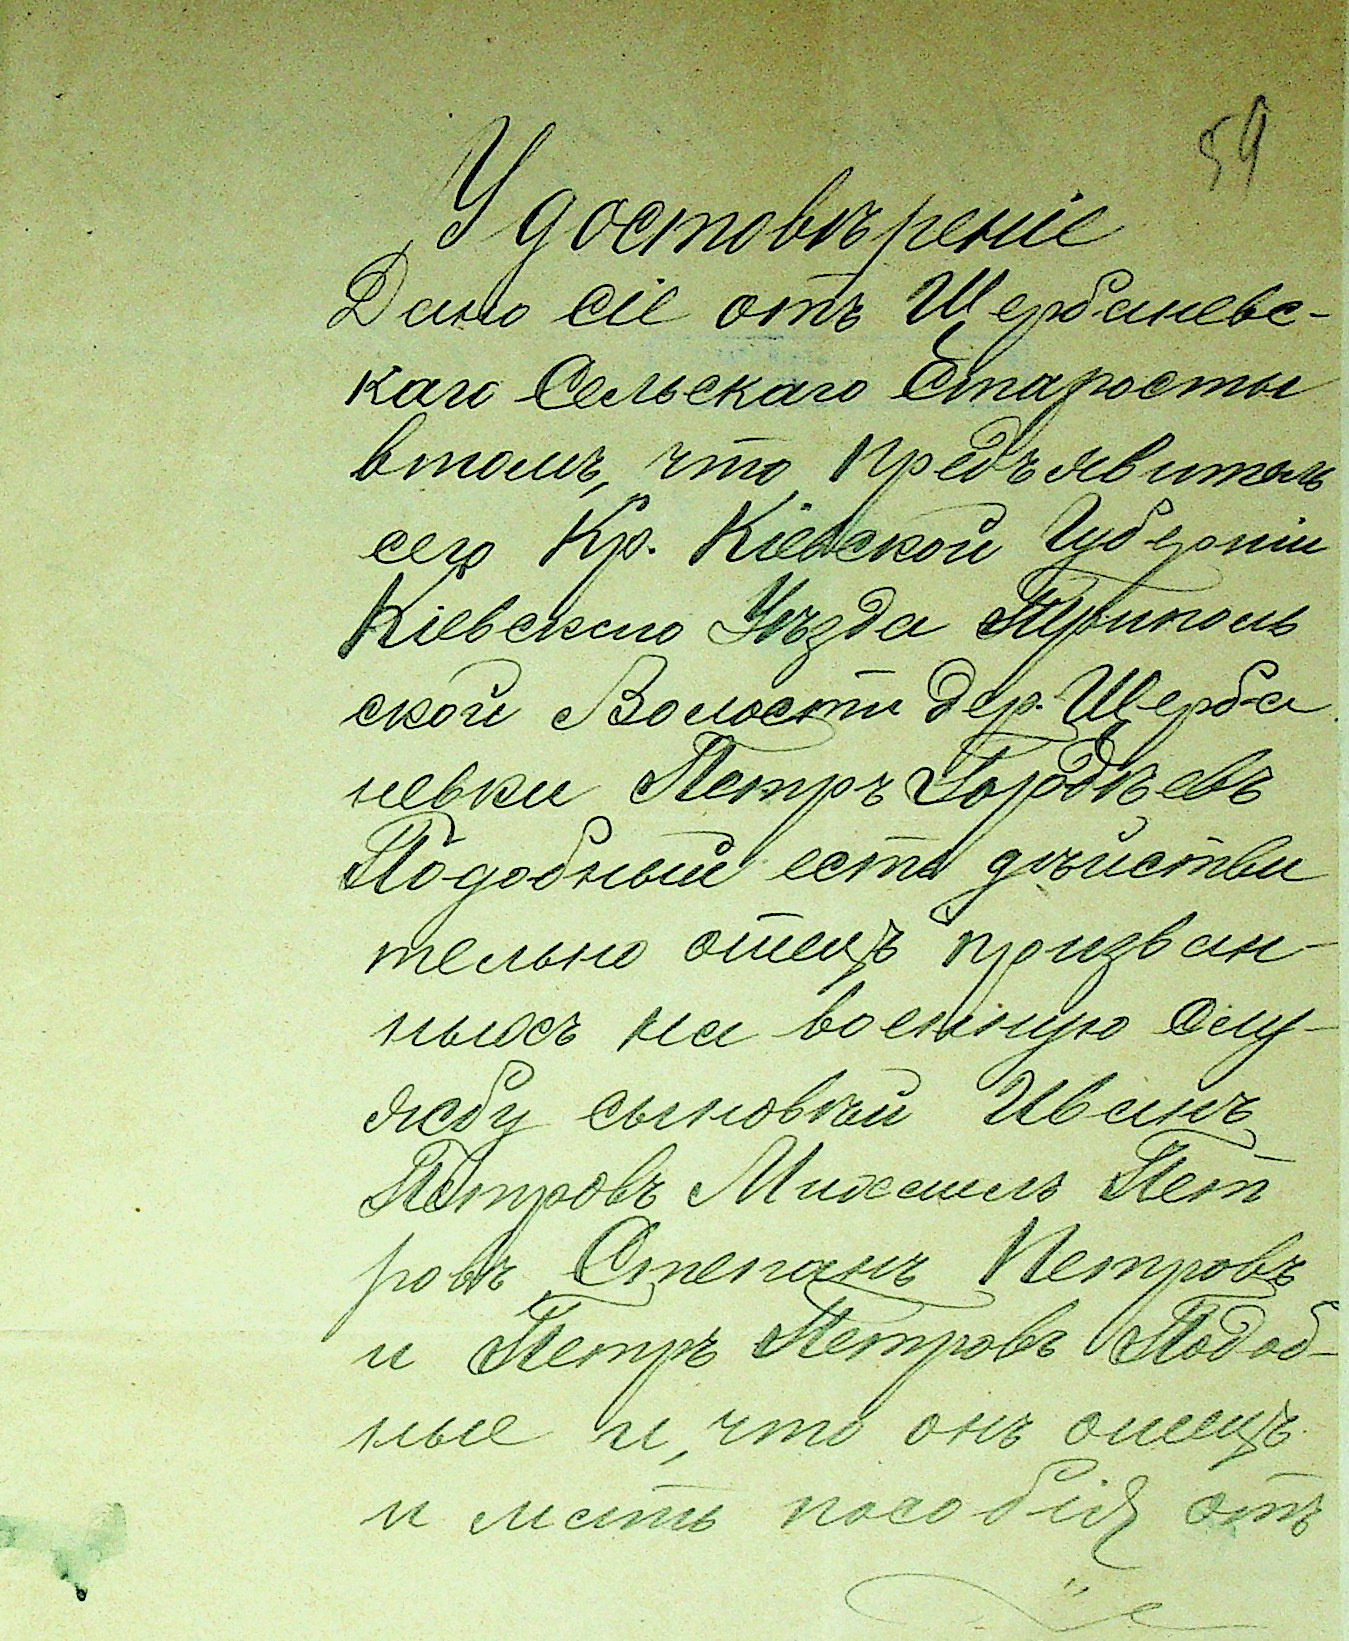 59
Удостовѣреніе
Дано сіе отъ Щербаневс-
каго Сельскаго Старосты
втомъ, что предъявитель
сего Кр. Кіевской Губерніи
Кіевскаго Уѣзда Триполь
ской Волости дер. Щерба
невки Петръ Гордѣевъ
Подобный есть дѣйстви
тельно отецъ призван-
ныхъ на военную слу-
жбу сыновѣй Иванъ
Петровъ Михаилъ Пет
ровъ Степанъ Петровъ
и Петръ Петровъ Подоб-
ные и, что онъ отецъ
и мать пособія отъ